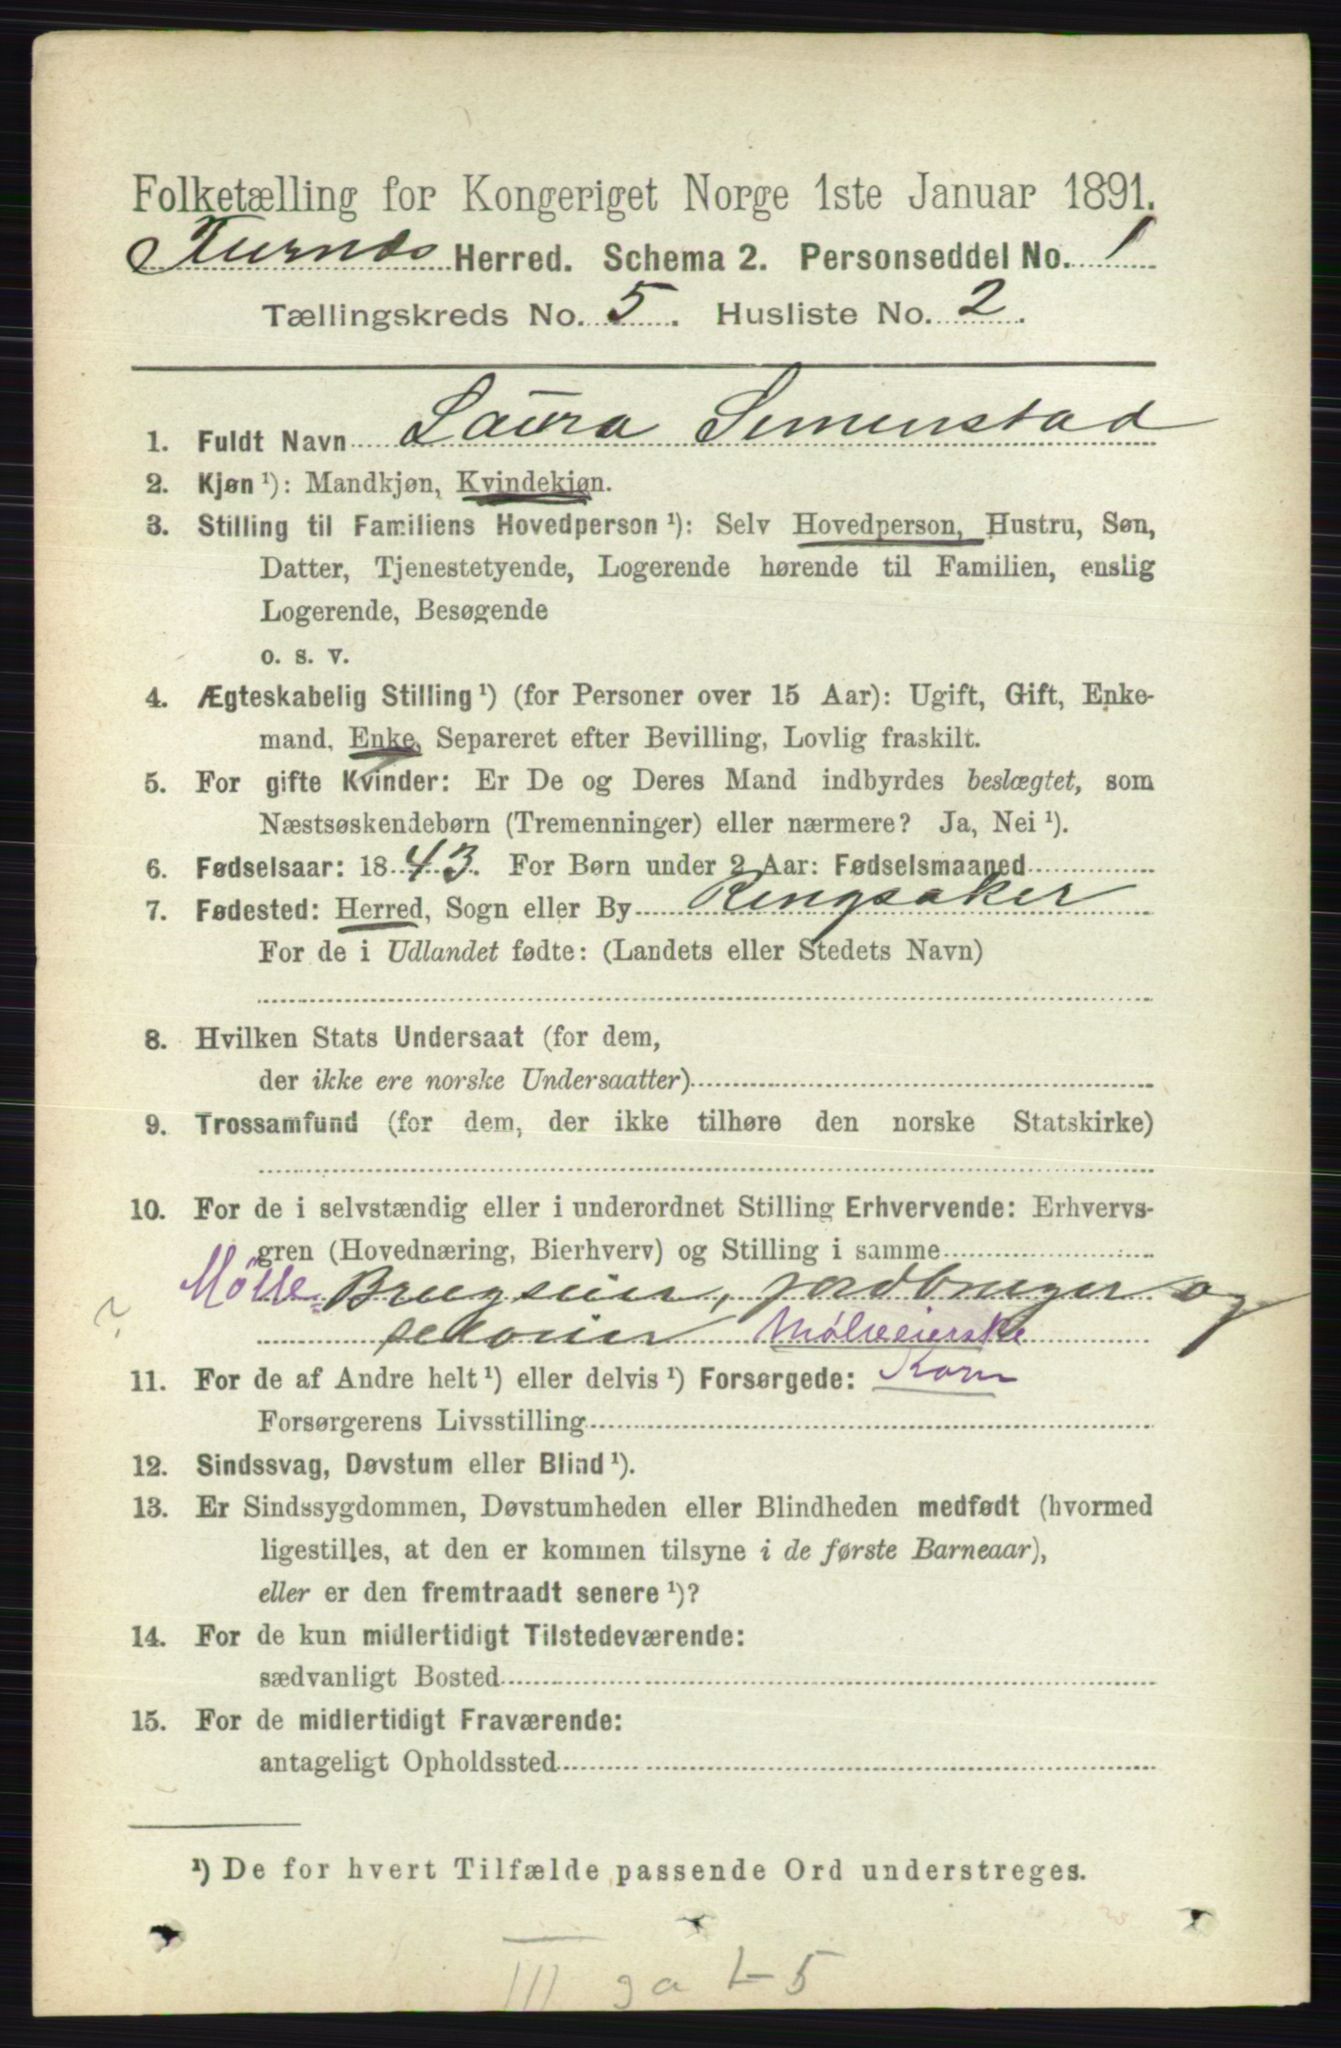 Folketælling for Kongeriget Norge 1ste Januar 1891.
Furnes Herred. Schema 2. Personseddel No. 1
Tællingskreds No. 5. Husliste No. 2.
1. Fuldt Navn Laura Simenstad
2. Kjøn ¹): Mandkjøn, Kvindekjøn.
3. Stilling til Familiens Hovedperson ¹): Selv Hovedperson, Hustru, Søn,
Datter, Tjenestetyende, Logerende hørende til Familien, enslig
Logerende, Besøgende
o. s. v.
4. Ægteskabelig Stilling ¹) (for Personer over 15 Aar): Ugift, Gift, Enke-
mand, Enke, Separeret efter Bevilling, Lovlig fraskilt.
5. For gifte Kvinder: Er De og Deres Mand indbyrdes beslægtet, som
Næstsøskendebørn (Tremenninger) eller nærmere? Ja, Nei ¹).
6. Fødselsaar: 1843. For Børn under 2 Aar: Fødselsmaaned
7. Fødested: Herred, Sogn eller By Ringsaker
For de i Udlandet fødte: (Landets eller Stedets Navn)
8. Hvilken Stats Undersaat (for dem,
der ikke ere norske Undersaatter)
9. Trossamfund (for dem, der ikke tilhøre den norske Statskirke)
10. For de i selvstændig eller i underordnet Stilling Erhvervende: Erhvervs-
gren (Hovednæring, Bierhverv) og Stilling i samme
Mølle= Brugseier, jordbruger og
? Mølleeierske
11. For de af Andre helt ¹) eller delvis ¹) Forsørgede: Korn
Forsørgerens Livsstilling
12. Sindssvag, Døvstum eller Blind ¹).
13. Er Sindssygdommen, Døvstumheden eller Blindheden medfødt (hvormed
ligestilles, at den er kommen tilsyne i de første Barneaar),
eller er den fremtraadt senere ¹)?
14. For de kun midlertidigt Tilstedeværende:
sædvanligt Bosted
15. For de midlertidigt Fraværende:
antageligt Opholdssted
¹) De for hvert Tilfælde passende Ord understreges.